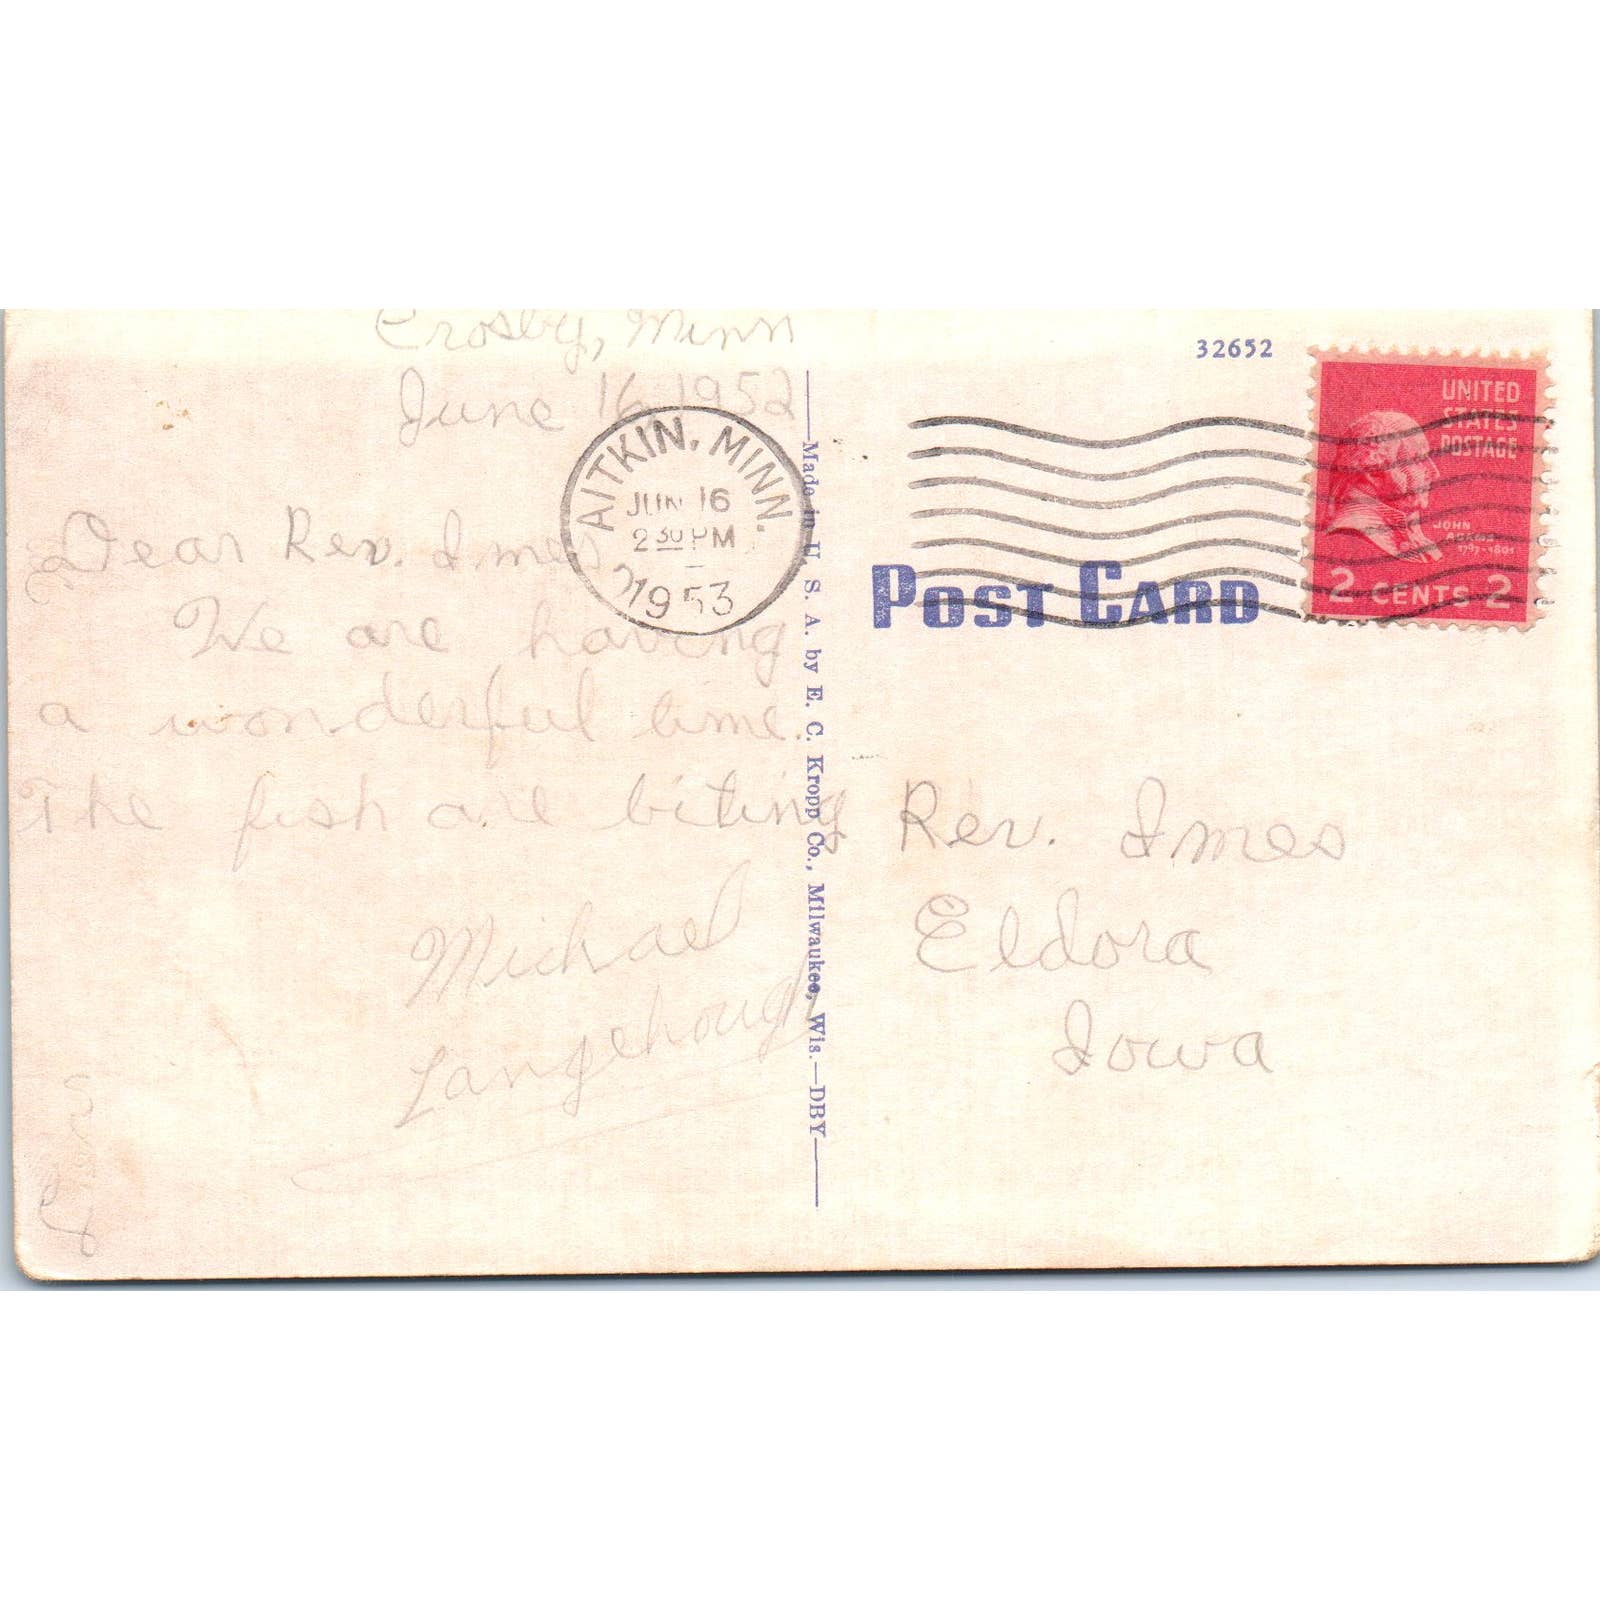 Crosby, Minn
June 16, 1952
Dear Rev. Imes
We are having
a wonderful time.
The fish are biting
Michael
Langehough
AITKIN, MINN.
JUN 16
2 30 PM
1953
Made in U. S. A. by E. C. Kropp Co., Milwaukee, Wis.—DBY
32652
UNITED
STATES
POSTAGE
JOHN
ADAMS
1797-1801
2 CENTS 2
POST CARD
Rev. Imes
Eldora
Iowa